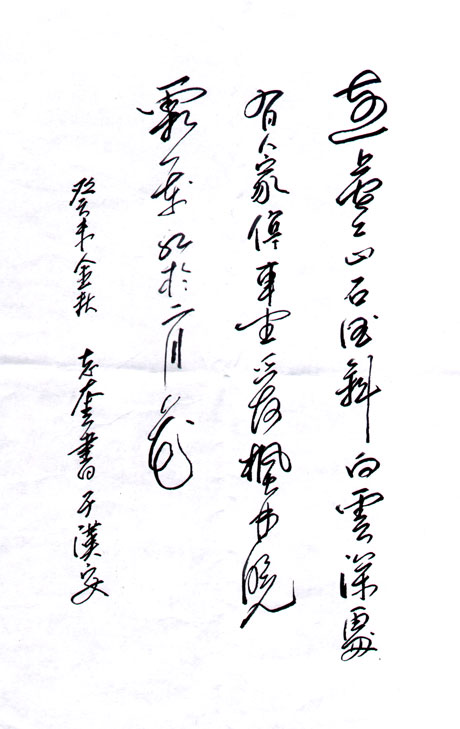 遠上寒山石徑斜白雲深處
有人家停車坐愛楓林晚
霜葉紅於二月花
癸未金秋 志奎書于漢安